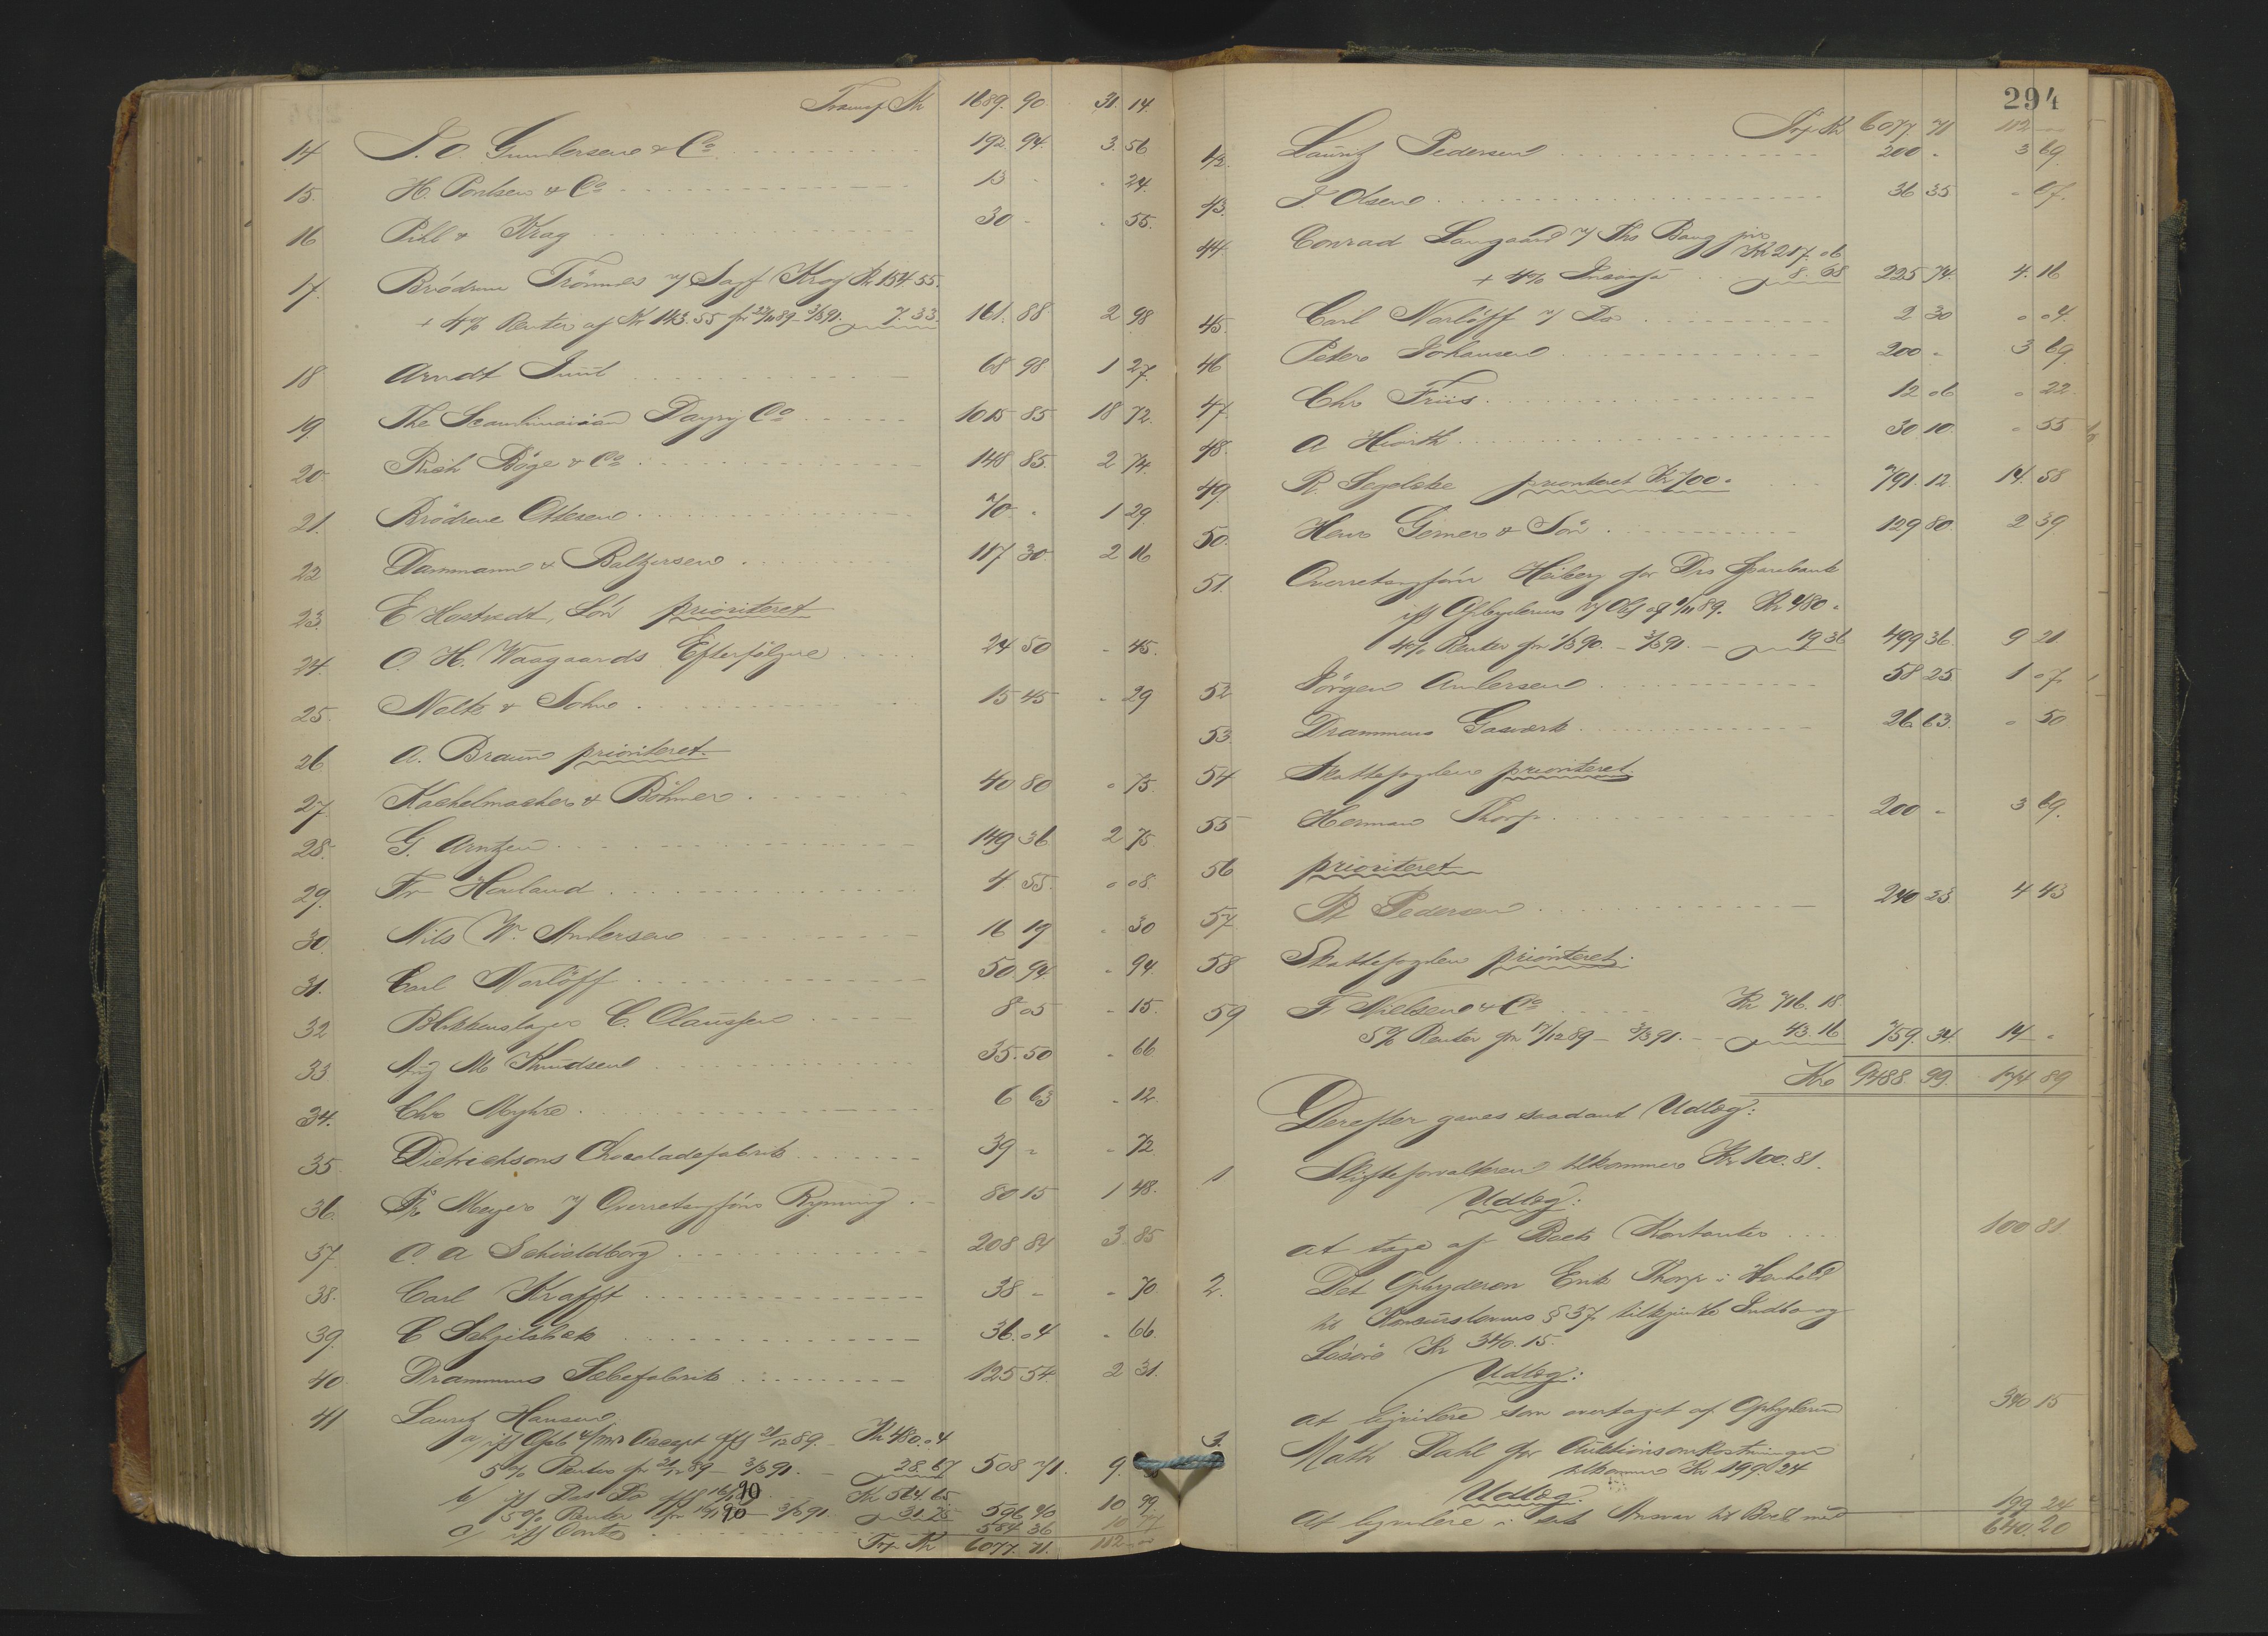 Transp Kr 1689. 90. 31. 14.
14 J. O. Gundersen & Co 192. 94. 3. 56
15. H. Poulsen & Co 13 - - 24.
16 Pihl & Krag 30 - - 55.
17. Brödrene Trönnes v/ Sagf Krag Kr 154 55.
+ 4% Renter af Kr 143. 55 fr 22/11 89 - 3/3 91. 7. 33. 161. 88. 2 98
18 Arndt Juul 68 98 1 27.
19 The Scandinavian Dayry Co 1015 85 18 72.
20. Rich Böge & Co 148 85. 2 74.
21. Brödrene Ottesen 70 - 1 29
22 Dammann & Baltzersen 117 30. 2 16
23. E Hostvedt, Sön prioriteret
24. O. H. Waagaards Efterfölgere 24 50 - 45.
25. Nolte & Sohn 15 45 - 29
26 A. Braun prioriteret.
27. Kachelmacher & Böhmer 40 80 - 75.
28. G. Arntzen 149 36 2 75
29. Fr Hovland 4 55. - 08.
30. Nils W. Andersen 16 19 - 30
31. Carl Norlöff 50 94. - 94.
32 Blikkenslager C. Claussen 8 05 - 15.
33 Aug M Knudsen 35. 50 - 66
34. Chr Myhre 6 63 - 12.
35. Dietrichsons Chocoladefabrik 39 - - 72
36. Fr Meyer v/ Overretssagförer Rynning 80 15 1 48.
37. C. A Schioldborg 208 84 3. 85
38. Carl Krafft 38 - - 70.
39. C 36. 04 - 66.
40. Drammens Sæbefabrik 125 54. 2 31.
41 Lauritz Hansen
a/ iff Opb v/ Accept 21/12 89. Kr 480. 04
5% Renter fr 21/12 89 - 3/3 91. - 28. 67 508 71. 9. 38
b/ iff Do Do Kr 564. 65
5% Renter fr 16/1 90 - 3/3 91 31. 75 596 40 10 99.
c/ iff Conto 584 36 10 77
Trp Kr 6077. 71. 112 -
294
Trp Kr 6077. 71 112 -
42. Lauritz Pedersen 200 - 3 69.
43. J. Olsen 36 35 - 67.
44. Conrad Langaard v/ Ths Bang jun Kr 217. 06
+ 4% Incasso 8. 68 225 74. 4. 16
45. Carl Norlöff v/ Do 2 30 - 04.
46 Peter Johansen 200 - 3 69.
47. Chr Friis 12 06 - 22
48. A Hiorth 30 10. - 55
49 R. prioriteret Kr 700 - 791. 12 14. 58
50. Henr Gerner & Sön 129 80. 2 39
51. Overretssagförer Heiberg for Drs Sparebank
iff Opbyderens v/ Obl af 6/11 89. Kr 480 -
4% Renter fr 1/3 90. - 3/3 91. - 19 36 499 36. 9 21
52. Jörgen Andersen 58 25 1 07.
53. Drammens Gasværk 26. 63. - 50
54. Skattefogden prioriteret
55 Herman Thorp 200 - 3 69.
56 prioriteret
57. R Pedersen 240 23. 4 43
58 Skattefogden prioriteret.
59 F Nielsen & Co Kr 716. 18.
5% Renter fra 17/12 89 - 3/3 91. - 43. 16 759. 34. 14 -
Kr 9488 99. 174 89
Derefter gaves saadant Udlæg:
1 Skifteforvalteren tilkommer Kr 100. 81.
Udlæg:
at tage af Boets Kontanter 100 81
2. Det Opbyderen Erik Thorp i Henhold
til Konkurslovens § 37. tilkjendte Indbo og
Lösöre Kr 340. 15.
Udlæg:
at liqvidere som overtaget af Opbyderen 340 15
3. Math Dahl for Auktionsomkostninger
tilkommer Kr 199. 24
Udlæg:
at liqvidere i sit Ansvar til Boet med 199 24
640. 20